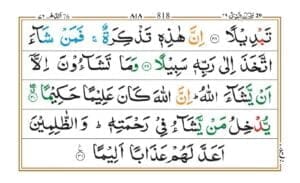 ٨١٨ 818
تَبْدِيْلًا ۝٢٨ اِنَّ هٰذِهٖ تَذْكِرَةٌ ۚ فَمَنْ شَآءَ
اتَّخَذَ اِلٰى رَبِّهٖ سَبِيْلًا ۝٢٩ وَمَا تَشَآءُوْنَ اِلَّاۤ
اَنْ يَّشَآءَ اللّٰهُ ؕ اِنَّ اللّٰهَ كَانَ عَلِيْمًا حَكِيْمًا ۝٣٠
يُّدْخِلُ مَنْ يَّشَآءُ فِيْ رَحْمَتِهٖ ؕ وَالظّٰلِمِيْنَ
اَعَدَّ لَهُمْ عَذَابًا اَلِيْمًا ۝٣١